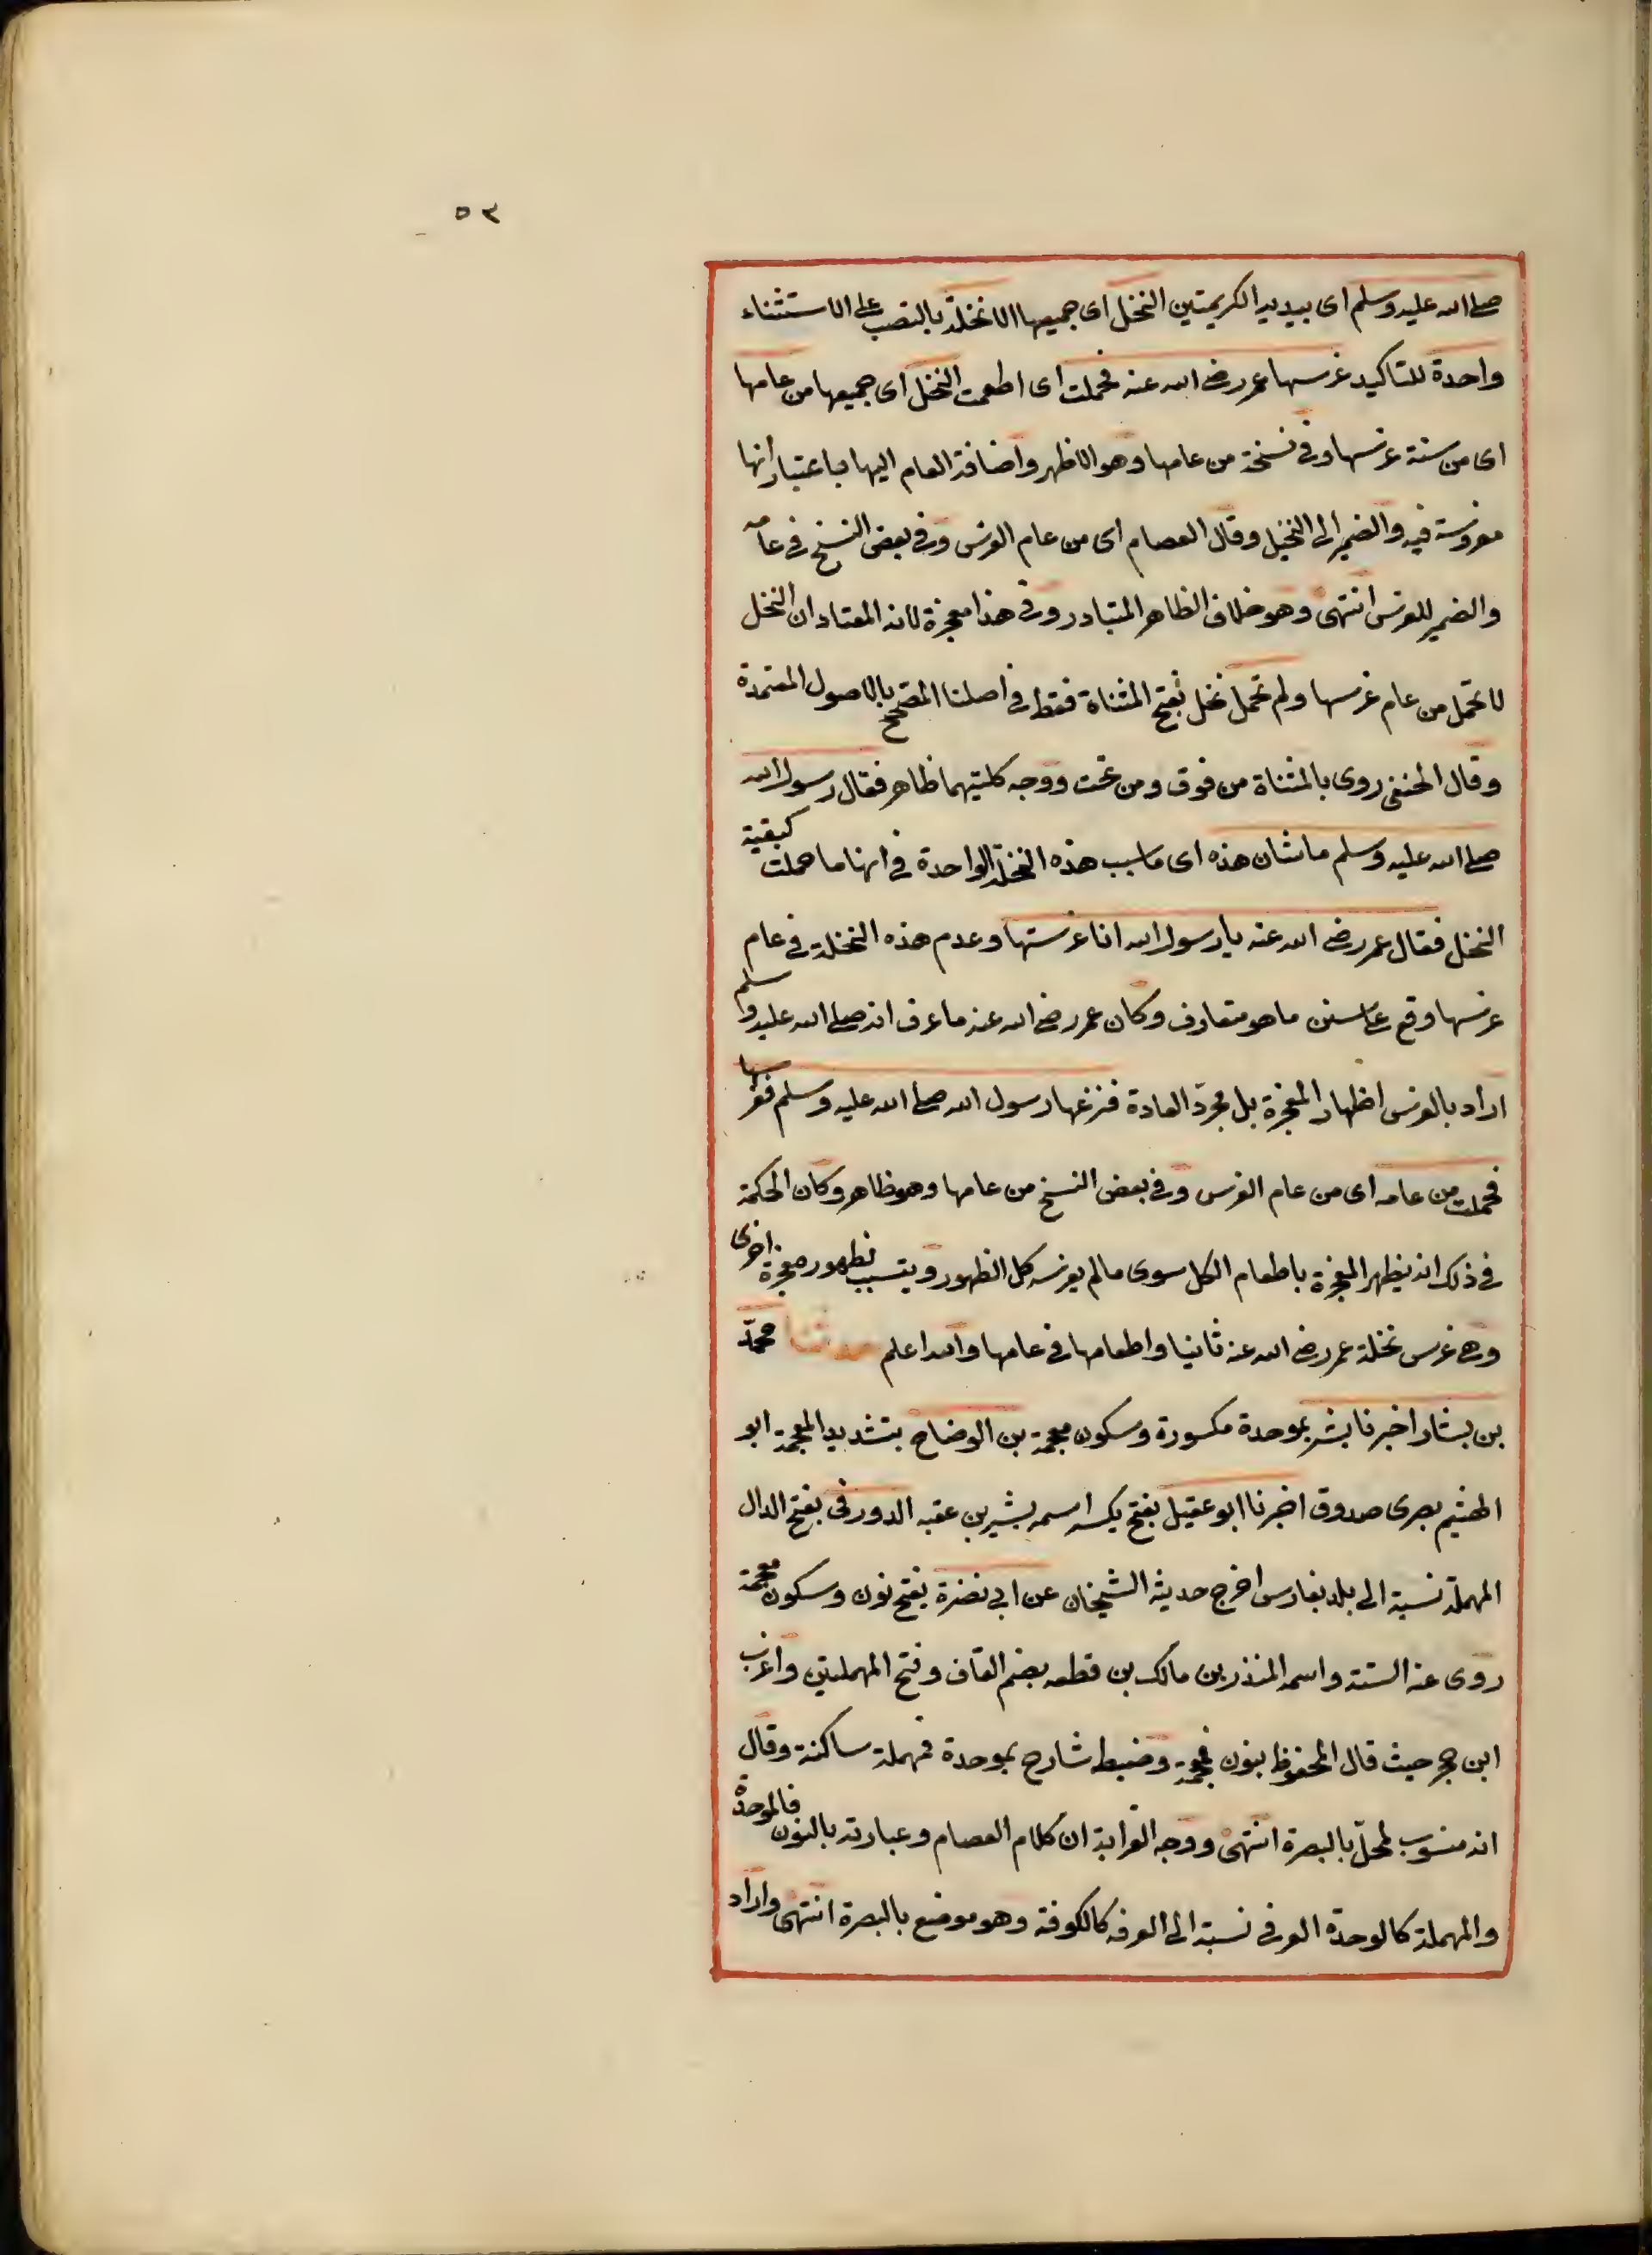 ٥٣
صلى الله عليه وسلم اى بيديه الكريمتين النخل اى جميعها الا نخلة بالنصب على الاستثناء
واحدة للتاكيد غرسها عمر رضى الله عنه فحملت اى اطعمت النخل اى جميعها من عامها
اى من سنة غرسها وفى نسخة من عامها وهو الاظهر واضافة العام اليها باعتبار أنها
مغروسة فيه والضمير الى النخيل وقال العصام اى من عام الغرس وفى بعض النسخ فى عامه
والضمير للغرس انتهى وهو خلاف الظاهر المتبادر وفى هذا معجزة لانه المعتاد ان النخل
لا تحمل من عام غرسها ولم تحمل نخل بفتح المثناة فقط فى اصلنا المصحح بالاصول المعتمدة
وقال الحنفى روى بالمثناة من فوق ومن تحت ووجه كلتيهما ظاهر فقال رسول الله
صلى الله عليه وسلم ما شان هذه اى ما سبب هذه النخلة الواحدة فى انها ما حملت كبقية
النخل فقال عمر رضى الله عنه يا رسول الله انا غرستها وعدم هذه النخلة فى عام
غرسها وقع على سنن ما هو متعارف وكان عمر رضى الله عنه ما عرف انه صلى الله عليه وسلم
اراد بالغرس اظهار المعجزة بل مجرد العادة فنزعها رسول الله صلى الله عليه وسلم فغرسها
فحملت من عامه اى من عام الغرس وفى بعض النسخ من عامها وهو ظاهر وكان الحكمة
فى ذلك انه يظهر المعجزة باطعام الكل سوى ما لم يغرسه كل الظهور ويتسبب لظهور معجزة اخرى
وهى غرس نخلة عمر رضى الله عنه ثانيا واطعامها فى عامها والله اعلم حدثنا محمد
بن بشار اخبرنا بشر بموحدة مكسورة وسكون معجمة بن الوضاح بتشديد المعجمة ابو
الهيثم بصرى صدوق اخبرنا ابو عقيل بفتح يكسر اسمه بشير بن عقبه الدورقى بفتح الدال
المهملة نسبة الى بلد بفارس اخرج حديثه الشيخان عن ابى نضرة بفتح نون وسكون معجمة
روى عنه الستة واسمه المنذر بن مالك بن قطعه بضم القاف وفتح المهملتين واغرب
ابن حجر حيث قال المحفوظ بنون فمعجمة وضبطه شارح بموحدة فمهملة ساكنة وقال
انه منسوب لمحل بالبصرة انتهى ووجه الغرابة ان كلام العصام وعبارته بالنون فالموحدة
والمهملة كالوحدة العوفى نسبة الى العوفه كالكوفة وهو موضع بالبصرة انتهى واراد